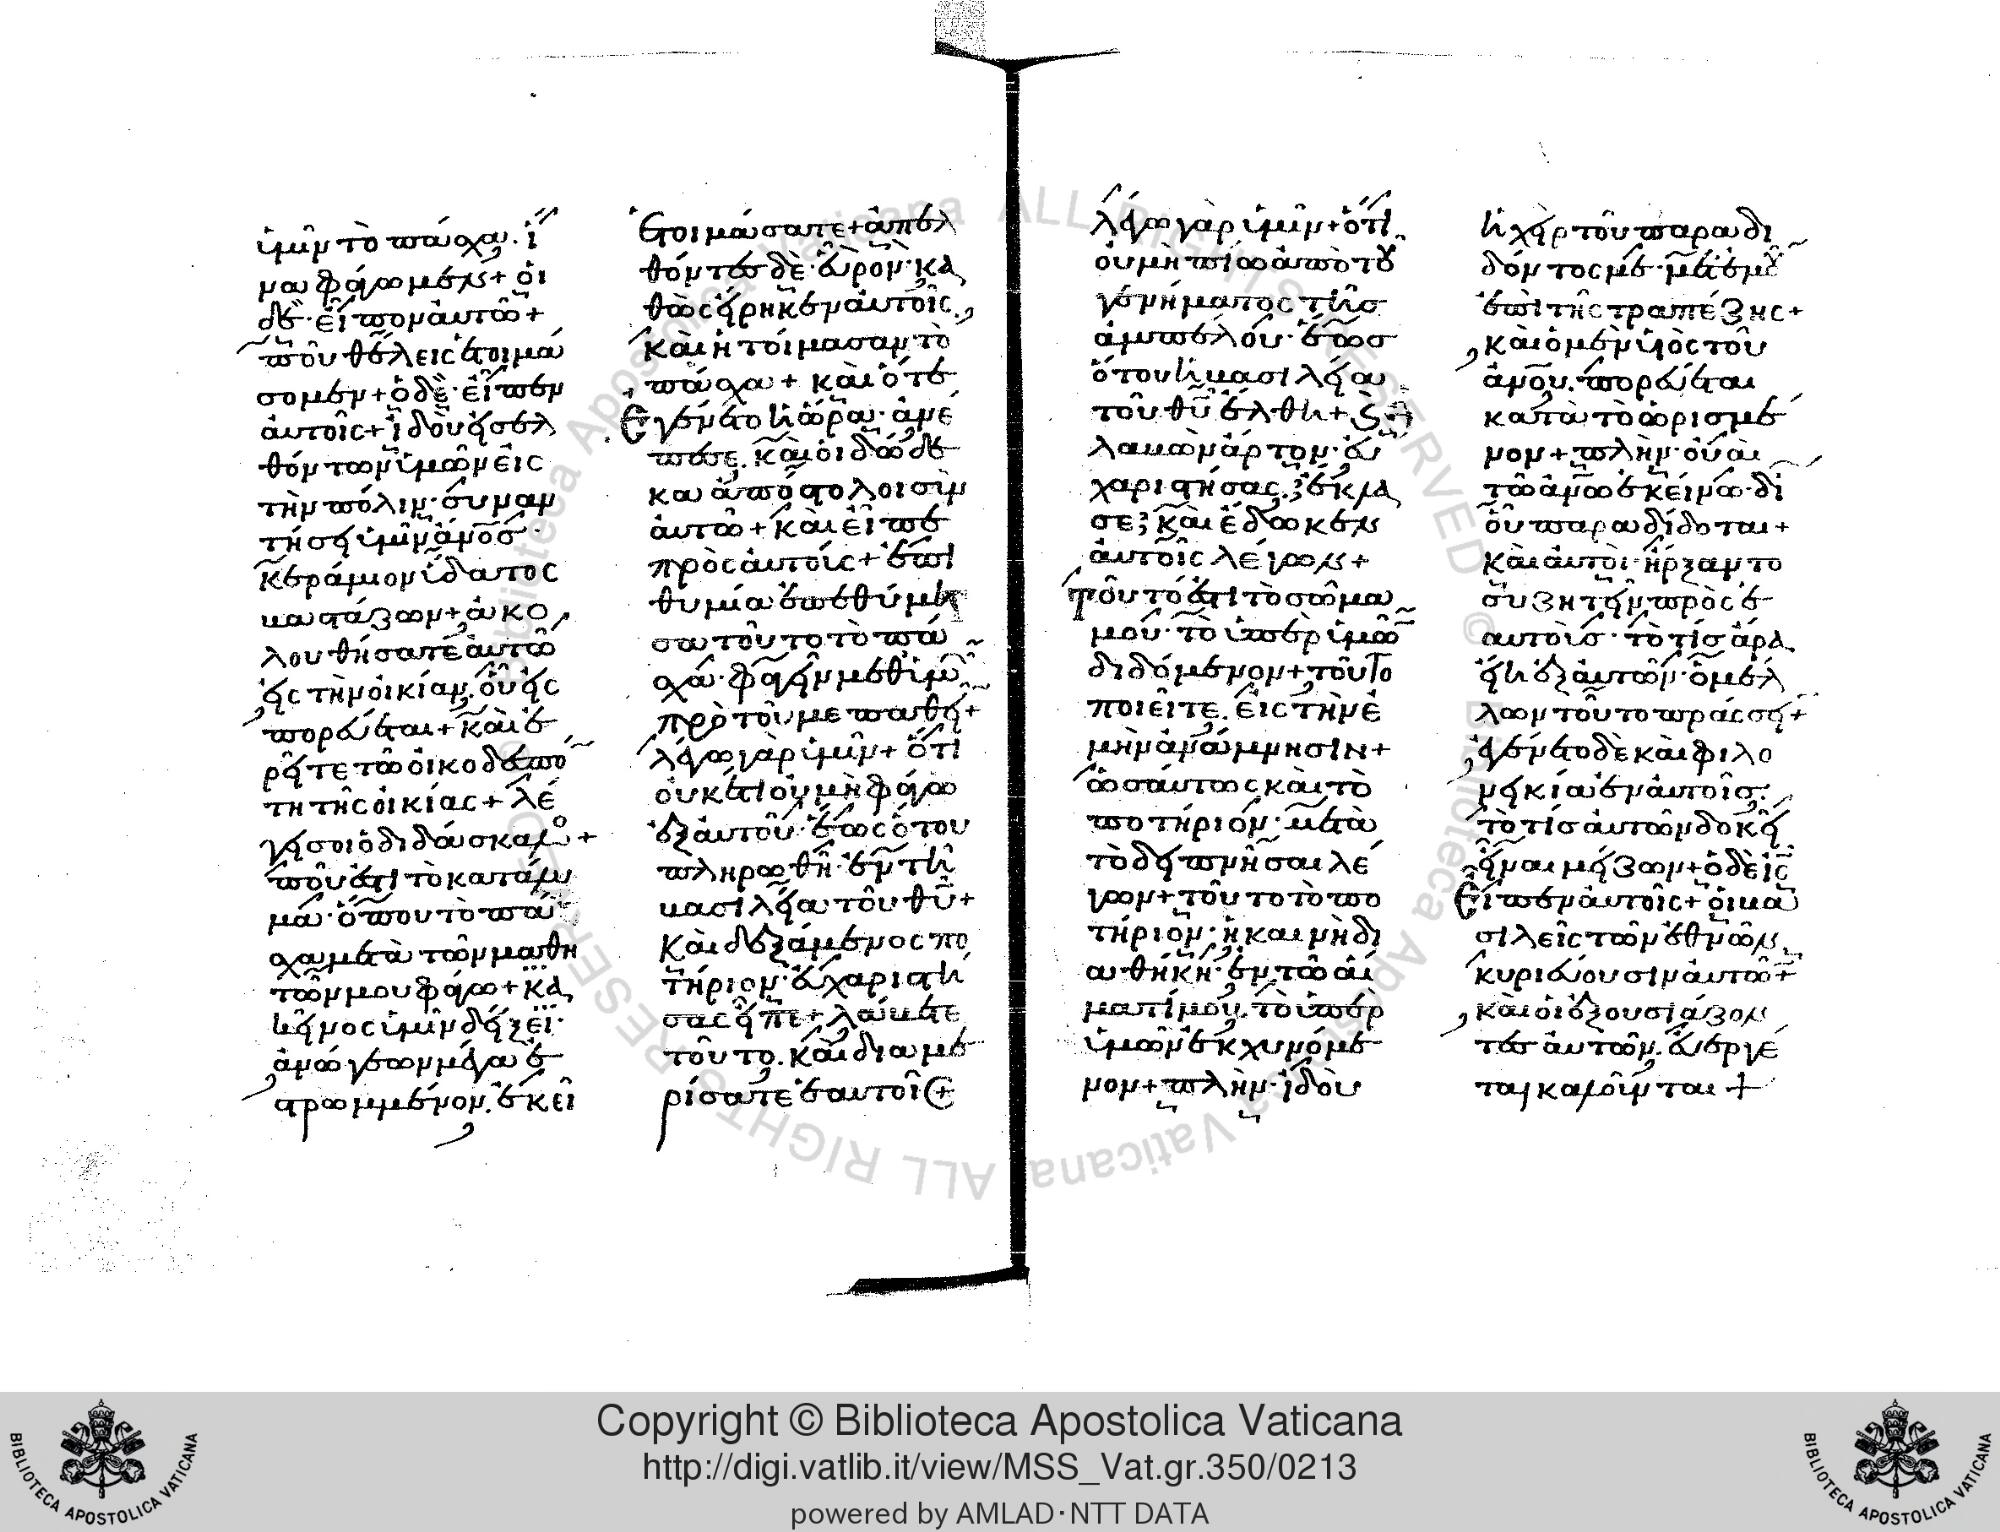 ὑμῖν τὸ πάσχα. ἵ
να φάγωμεν + οἱ
δὲ· εἶπον αὐτῶ +
ποῦ θέλεις ἑτοιμά
σομεν + ὁ δὲ· εἶπεν
αὐτοῖς + ἰδοὺ εἰσελ
θόντων ὑμῶν εἰς
τὴν πόλιν· συναν
τήσει ὑμῖν ἄνος
κεράμιον ὕδατος
βαστάζων + ἀκο
λουθήσατε αὐτῶ
εἰς τὴν οἰκίαν, οὗ εἰς
πορεύεται + καὶ ἐ
ρεῖτε τῶ οἰκοδεσπό
τη τῆς οἰκίας + λέ
γει σοι ὁ διδάσκαλο +
ποῦ ἐστι τὸ κατάλυ
μα· ὅπου τὸ πά
σχα μετὰ τῶν μαθη
τῶν μου φάγω + κα
κεῖνος ὑμῖν δείξει·
ἀνώγεων μέγα ἐ
στρωμμένον, ἐκεῖ
Ἑτοιμάσατε + ἀπελ
θόντες δὲ· εὗρον· κα
θὼς εἴρηκεν αὐτοῖς,
καὶ ἡτοίμασαν τὸ
πάσχα + καὶ ὅτε
Ἐγένετο ἡ ὥρα· ἀνέ
πεσε. καὶ οἱ δώδε
κα ἀπόστολοι σὺν
αὐτῶ + καὶ εἶπε
πρὸς αὐτούς + ἐπι
θυμία ἐπεθύμη
σα τοῦτο τὸ πά
σχα· φαγεῖν μεθ ὑμῶ
πρὸ τοῦ με παθεῖ +
λέγω γὰρ ὑμῖν + ὅτι
οὐκέτι οὐ μὴ φάγω
ἐξ αὐτοῦ· ἕως ὅτου
πληρωθῆ· ἐν τῆ
βασιλεία τοῦ θυ +
καὶ δεξάμενος πο
τήριον· εὐχαριστή
σας εἶπε + λάβετε
τοῦτο. καὶ διαμε
ρίσατε ἑαυτοῖς +
λέγω γὰρ ὑμῖν + ὅτι
οὐ μὴ πίω ἀπὸ τοῦ
γενήματος τῆς
ἀμπέλου· ἕως
ὅτου ἡ βασιλεία
τοῦ θυ ἔλθη + καὶ
λαβὼν ἄρτον· εὐ
χαριστήσας, ἔκλα
σε, καὶ ἔδωκεν
αὐτοῖς λέγων +
Τοῦτό ἐστι τὸ σῶμα
μου· τὸ ὑπὲρ ὑμῶ
διδόμενον + τοῦτο
ποιεῖτε, εἰς τὴν ἐ
μὴν ἀνάμνησιν +
ὡσαύτως καὶ τὸ
ποτήριον· μετὰ
τὸ δειπνῆσαι λέ
γων + τοῦτο τὸ πο
τήριον· ἡ καινὴ δι
αθήκη· ἐν τῶ αἵ
ματί μου, τὸ ὑπὲρ
ὑμῶν ἐκχυνόμε
νον + πλὴν· ἰδοὺ
ἡ χεὶρ τοῦ παραδι
δόντος με· μετ ἐμοῦ
ἐπὶ τῆς τραπέζης +
καὶ ὁ μὲν υἱὸς τοῦ
ἀνου, πορεύεται
κατὰ τὸ ὡρισμέ
νον + πλὴν· οὐαὶ
τῶ ἀνω ἐκείνω· δι
οὗ παραδίδοται +
καὶ αὐτοὶ· ἤρξαντο
συζητεῖν πρὸς ἑ
αυτοὺς· τὸ τίς ἄρα
εἴη ἐξ αὐτῶν· ὁ μέλ
λων τοῦτο πράσσει +
ἐγένετο δὲ καὶ φιλο
νεικία ἐν αὐτοῖς·
τὸ τίς αὐτῶν δοκεῖ
εἶναι μείζων + ὁ δὲ ις
Εἶπεν αὐτοῖς + οἱ βα
σιλεῖς τῶν ἐθνῶν,
κυριεύουσιν αὐτῶ +
καὶ οἱ ἐξουσιάζον
τες αὐτῶν, εὐεργέ
ται καλοῦνται +
Copyright © Biblioteca Apostolica Vaticana
http://digi.vatlib.it/view/MSS_Vat.gr.350/0213
powered by AMLAD·NTT DATA
BIBLIOTECA APOSTOLICA VATICANA
BIBLIOTECA APOSTOLICA VATICANA